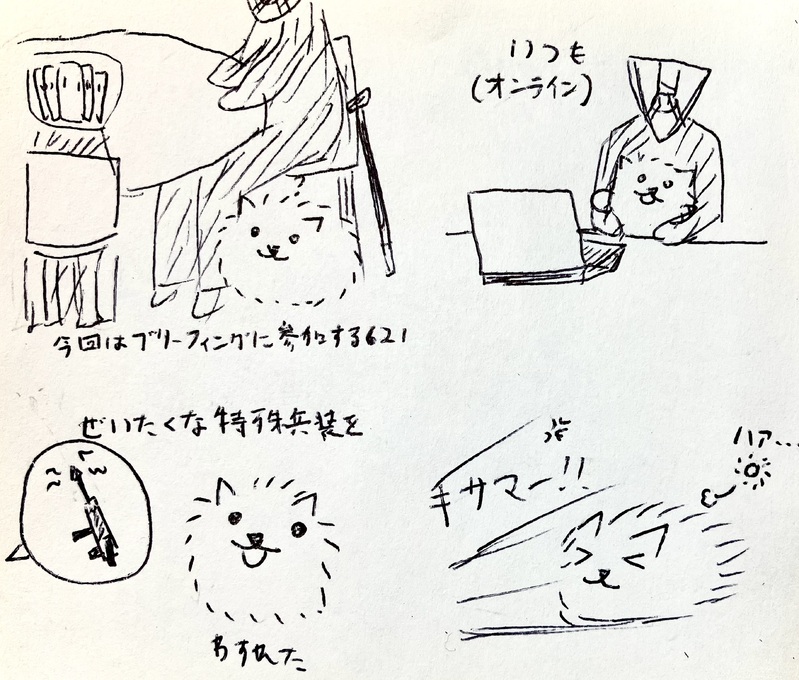 いつも
(オンライン)
今回はブリーフィングに参加する621
ぜいたくな特殊兵装を
わすれた
キサマー!!
ハァ...